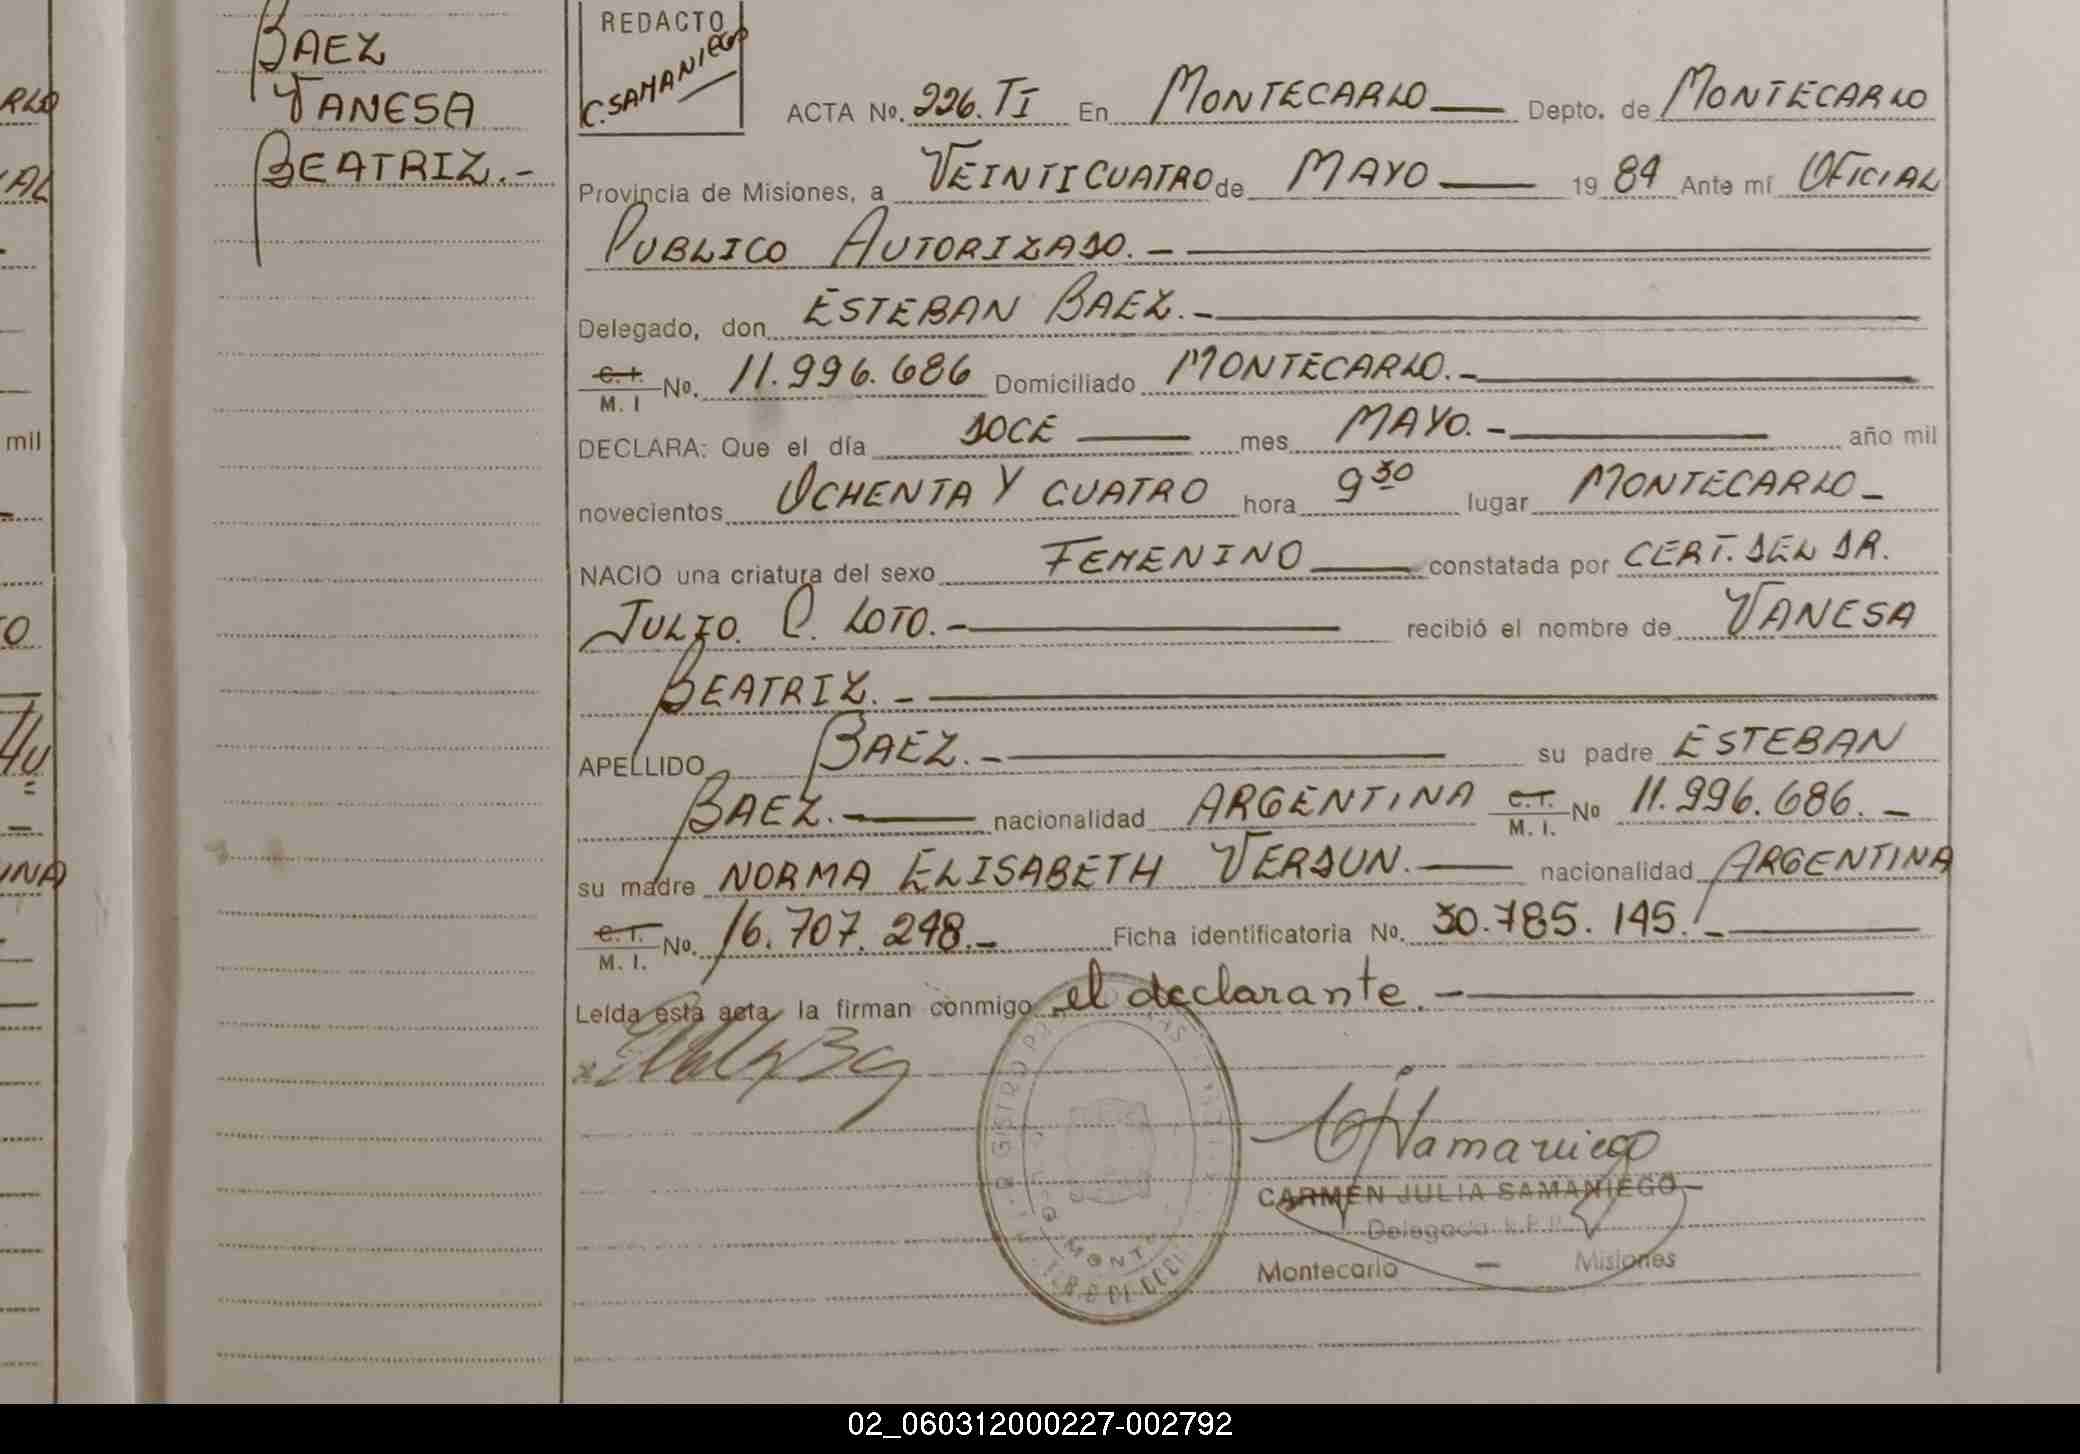 BAEZ
VANESA
BEATRIZ.-
REDACTO
C. SAMANIEGO
ACTA No. 226. TI En MONTECARLO Depto. de MONTECARLO
Provincia de Misiones, a VEINTICUATRO de MAYO 19 84 Ante mí OFICIAL
PUBLICO AUTORIZADO.-
Delegado, don ESTEBAN BAEZ.-
C. I. M. I No. 11.996.686 Domiciliado MONTECARLO.-
DECLARA: Que el día DOCE mes MAYO.- año mil
novecientos OCHENTA Y CUATRO hora 9 30 lugar MONTECARLO-
NACIO una criatura del sexo FEMENINO constatada por CERT. DEL DR.
JULIO. C. LOTO.- recibió el nombre de VANESA
BEATRIZ.-
APELLIDO BAEZ.- su padre ESTEBAN
BAEZ.- nacionalidad ARGENTINA C.I. M. I. No 11.996.686.-
su madre NORMA ELISABETH VERDUN.- nacionalidad ARGENTINA
C. I. M. I. No. 16.707.248.- Ficha identificatoria No. 30.785.145.-
Leída esta acta, la firman conmigo el declarante.-
CJSamaniego
CARMEN JULIA SAMANIEGO
Delegada R.P.P.
Montecarlo - Misiones
RLO
AL
mil
O
INA
02_060312000227-002792